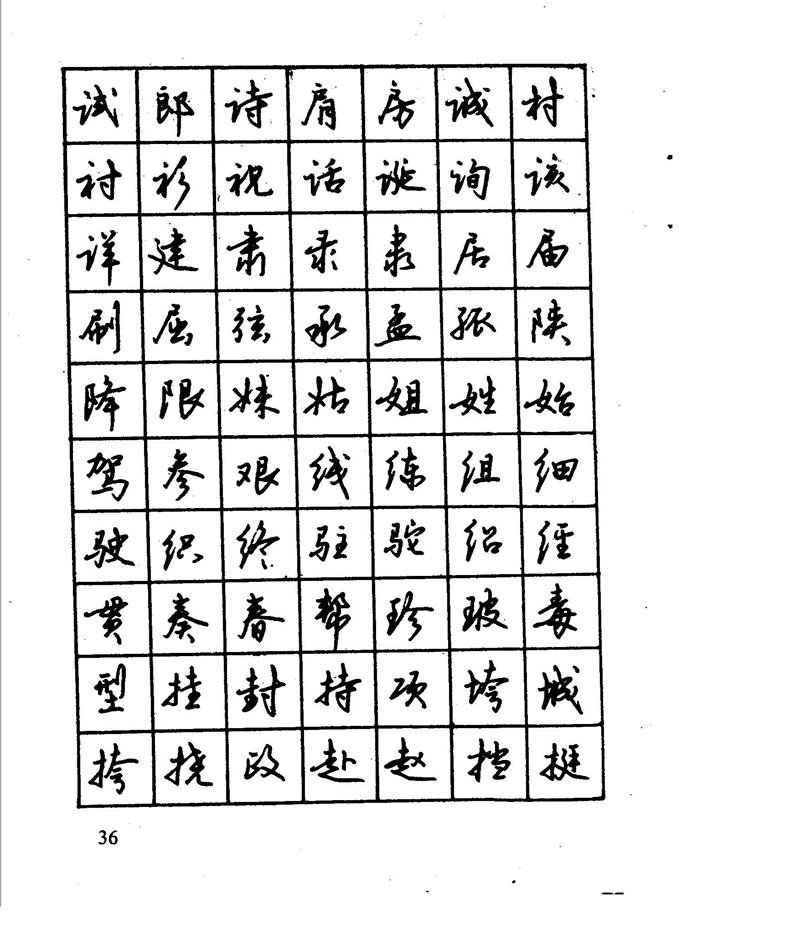 试郎诗肩房诚衬
衬衫祝话诞询该
详建肃录隶居届
刷屈弦承孟孤陕
降限妹姑姐姓始
驾参艰线练组细
驶织终驻驼绍经
贯奏春帮珍玻毒
型挂封持项垮城
挎挠政赴赵挡挺
36